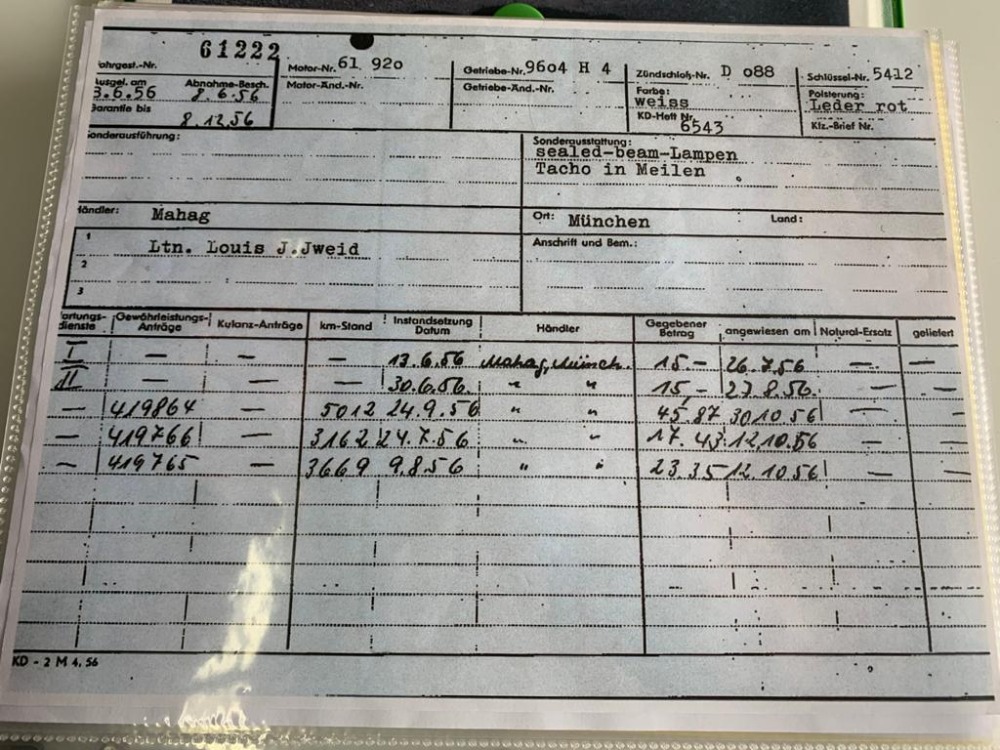 61222
ahrgest.-Nr.
Motor-Nr. 61 920
Getriebe-Nr. 9604 H 4
Zündschloß-Nr. D 088
Schlüssel-Nr. 5412
Ausgel. am
Abnahme-Besch.
Motor-Änd.-Nr.
Getriebe-Änd.-Nr.
Farbe:
Polsterung:
8.6.56
8.6.56
weiss
Leder rot
Garantie bis
KD-Heft Nr.
Kfz.-Brief Nr.
8.12.56
6543
Sonderausführung:
Sonderausstattung:
sealed-beam-Lampen
Tacho in Meilen
Händler: Mahag
Ort: München
Land:
1
Ltn. Louis J.Jweid
Anschrift und Bem.:
2
3
artungs-dienste
Gewährleistungs-Anträge
Kulanz-Anträge
km-Stand
Instandsetzung Datum
Händler
Gegebener Betrag
angewiesen am
Natural-Ersatz
geliefert
I — — — 13.6.56 Mahag, Münch. 15.- 26.7.56 — —
II — — — 30.6.56. " " 15,- 27.8.56. — —
— 419864 — 5012 24.9.56 " " 45,87 30.10.56 — —
— 419766 — 3162 24.7.56 " " 17.43 12.10.56 — —
— 419765 — 3669 9.8.56 " " 23.35 12.10.56 — —
KD - 2 M 4. 56